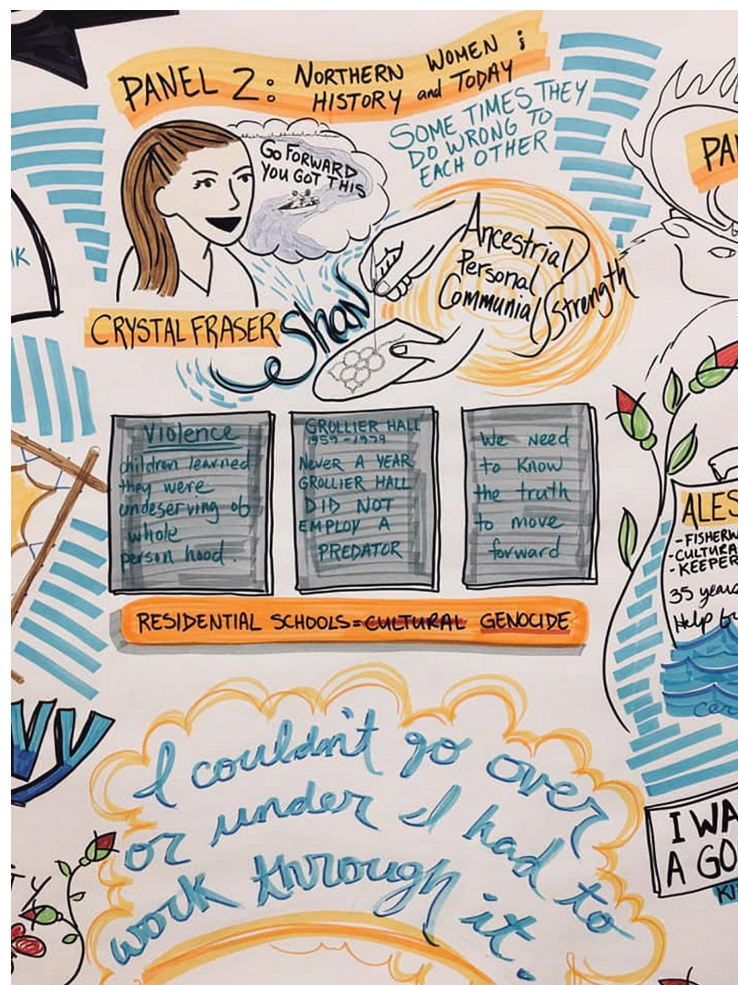 PANEL 2: NORTHERN WOMEN :
HISTORY and TODAY
SOME TIMES THEY
DO WRONG TO
EACH OTHER
GO FORWARD
YOU GOT THIS
CRYSTAL FRASER
Ancestrial
Personal
Communial Strength
Violence
children learned
they were
undeserving of
whole
person hood.
GROLLIER HALL
1959-1979
NEVER A YEAR
GROLLIER HALL
DID NOT
EMPLOY A
PREDATOR
We need
to know
the truth
to move
forward
RESIDENTIAL SCHOOLS = CULTURAL GENOCIDE
I couldn't go over
or under I had to
work through it.
PA
ALES
- FISHERW
- CULTURA
- KEEPER
35 years
Help
I WA
A GO